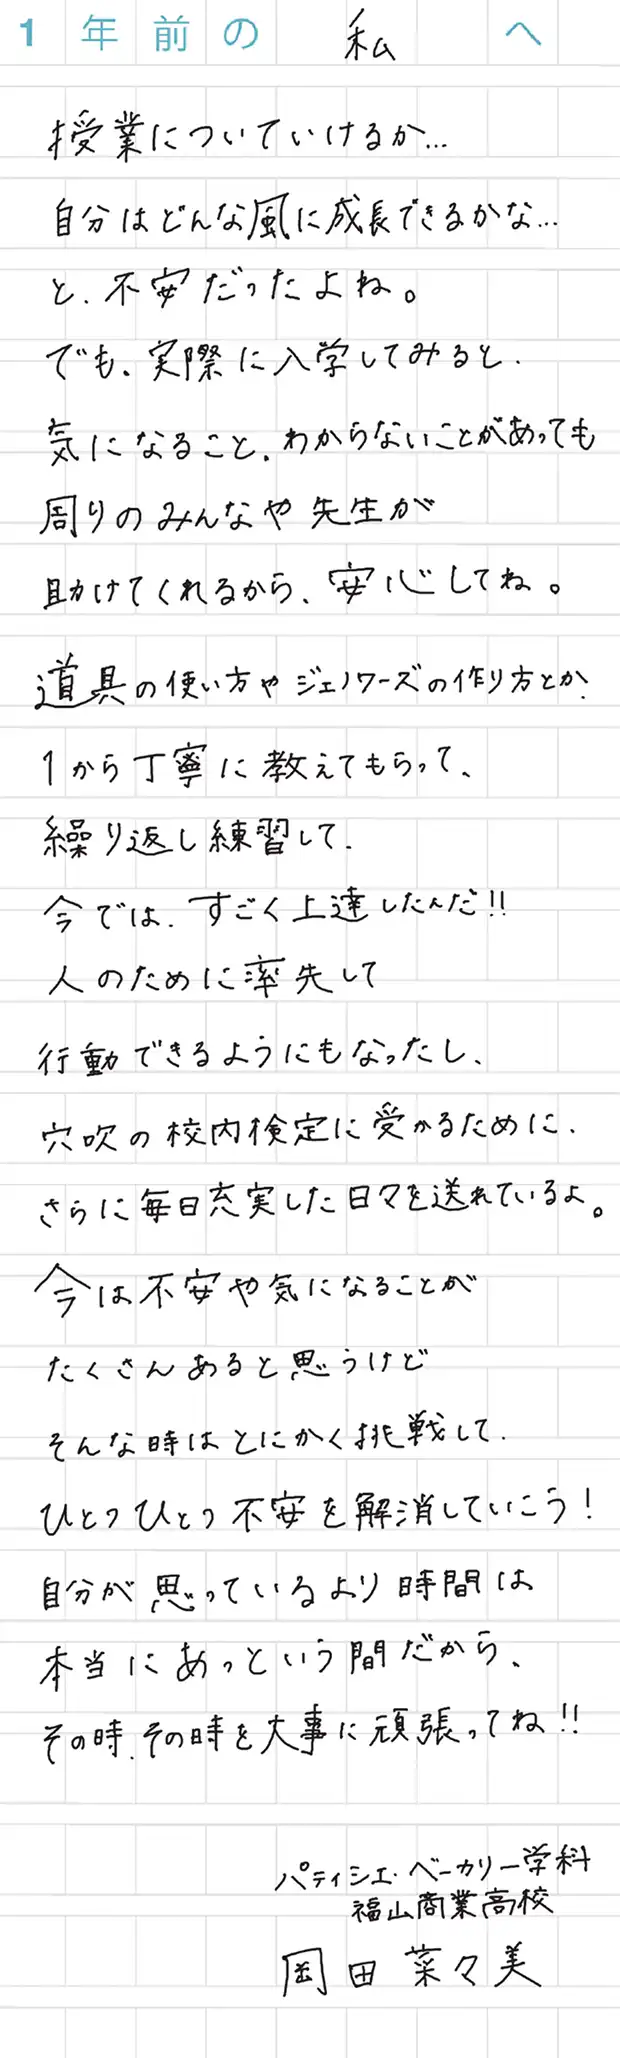 1年前の私へ
授業についていけるか…
自分はどんな風に成長できるかな…
と、不安だったよね。
でも、実際に入学してみると、
気になること、わからないことがあっても
周りのみんなや先生が
助けてくれるから、安心してね。
道具の使い方やジェノワーズの作り方とか、
1から丁寧に教えてもらって、
繰り返し練習して、
今では、すごく上達したんだ!!
人のために率先して
行動できるようにもなったし、
穴吹の校内検定に受かるために、
さらに毎日充実した日々を送れているよ。
今は不安や気になることが
たくさんあると思うけど
そんな時はとにかく挑戦して、
ひとつひとつ不安を解消していこう!
自分が思っているより時間は
本当にあっという間だから、
その時、その時を大事に頑張ってね!!
パティシエ・ベーカリー学科
福山商業高校
岡田菜々美